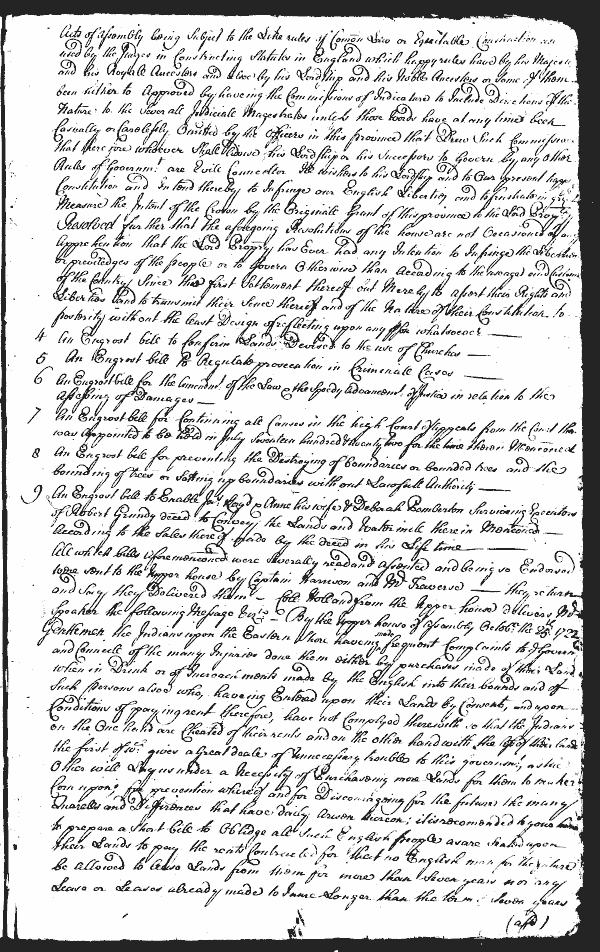 Acts of Assembly being Subject to the Like rules of Comon Law or Equitable Construction as are
used by the Judges in Construeing Statutes in England which happy rules have by his Majesty
and his Royall Ancestors and alsoe by his Lordship and his Noble Ancestors or some of them
been hitherto Approved by haveing the Commissions of Judicature to Include Directions of that
Nature to the Severall Judiciall Magestrates unless those words have at any time been
Casually or Carelessly Omitted by the Officers in this province that Drew Such Commissions
that therefore whoever Shall advise his Lordship or his Successors to Govern by any Other
Rules of Governmt. are Evill Councellors Ill wishers to his Lordship and to Our present happy
Constitution and Intend thereby to Infringe our English Liberties and to frustrate in great
Measure the Intent of the Crown by the Originall Grant of this province to the Lord Propry
Resolved further that the aforegoing Resolutions of the house are not Occasioned by any
Apprehention that the Lord Propry has Ever had any Intention to Infringe the Liberties
or priviledges of the people or to Govern Otherwise than According to the usage and Customs
of the Country Since the first Settlement thereof but Meerly to assert their Rights and
Liberties and to transmit their Sence thereof and of the Nature of their Constitution to
posterity without the least Design of reflecting upon any pson whatsoever
4 An Engrost bill to Confirm Lands Devised to the use of Churches
5 An Engrost bill to Regulate prosecution in Criminall Cases
6 An Engrost bill for the Amendmt. of the Law & the Speedy Advancemt. of Justice in relation to the
Assessing of Damages
7 An Engrost bill for Continuing all Causes in the high Court of Appeals from the Court that
was Appointed to be held in July Seventeen hundred & twenty two for the time therein Menconed
8 An Engrost bill for preventing the Destroying of boundaries or bounded trees and the
bounding of trees or Setting up boundaries without Lawfull Authority
9 An Engrost bill to Enable Jas. Lloyd & Anne his wife & Deborah Pemberton Surviving Executors
of Robert Grundy deced to Convey the Lands and Water mill therein Menconed
According to the Sales thereof made by the deced in his Life time
All which bills aforemenconed were Severally read and assented and being so Endorsed
were sent to the Upper house by Captain Harrison and Mr. Traverse they return
and Say they Delivered them Coll Holland from the Upper house delivers Mr.
Speaker the following Message Vizt By the Upper house of Assembly Octobr. the 25th 1722
Gentlemen the Indians upon the Eastern Shore haveing made frequent Complaints to the Governr
and Councell of the many Injuries done them either by purchases made of their Land
when in Drink or of Incroachments made by the English into their bounds and of
Such persons alsoe who, haveing Entered upon their Lands by Consent, and upon
Conditions of paying rent therefore, have not Complyed therewith so that the Indians
on the One hand are Cheated of their rents and on the other hand with the use of their land
the first of wch. gives a Great deale of Unnecessary troubles to this governmt, as the
Other will Lay us under a Necessity of Purchasing more Lands for them to make
Corn upon; for prevention whereof and for Discouraging for the future the many
Quarells and Differences that have daily Arisen thereon; it is recomended to your house
to prepare a Short bill to Obledge all Such English people as are Seated upon
their Lands to pay the rents Contracted for that no English man for the future
be allowed to lease Lands from them for more than Seven years nor any
Lease or Leases already made to Inure Longer than the term of Seven years